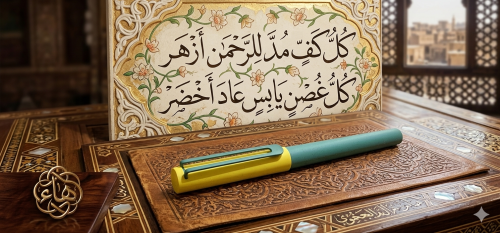 كُلُّ كَفٍّ مُدَّ لِلرَّحْمٰنِ أَزْهَر
كُلُّ غُصْنٍ يَابِسٍ عَادَ أَخْضَرْ